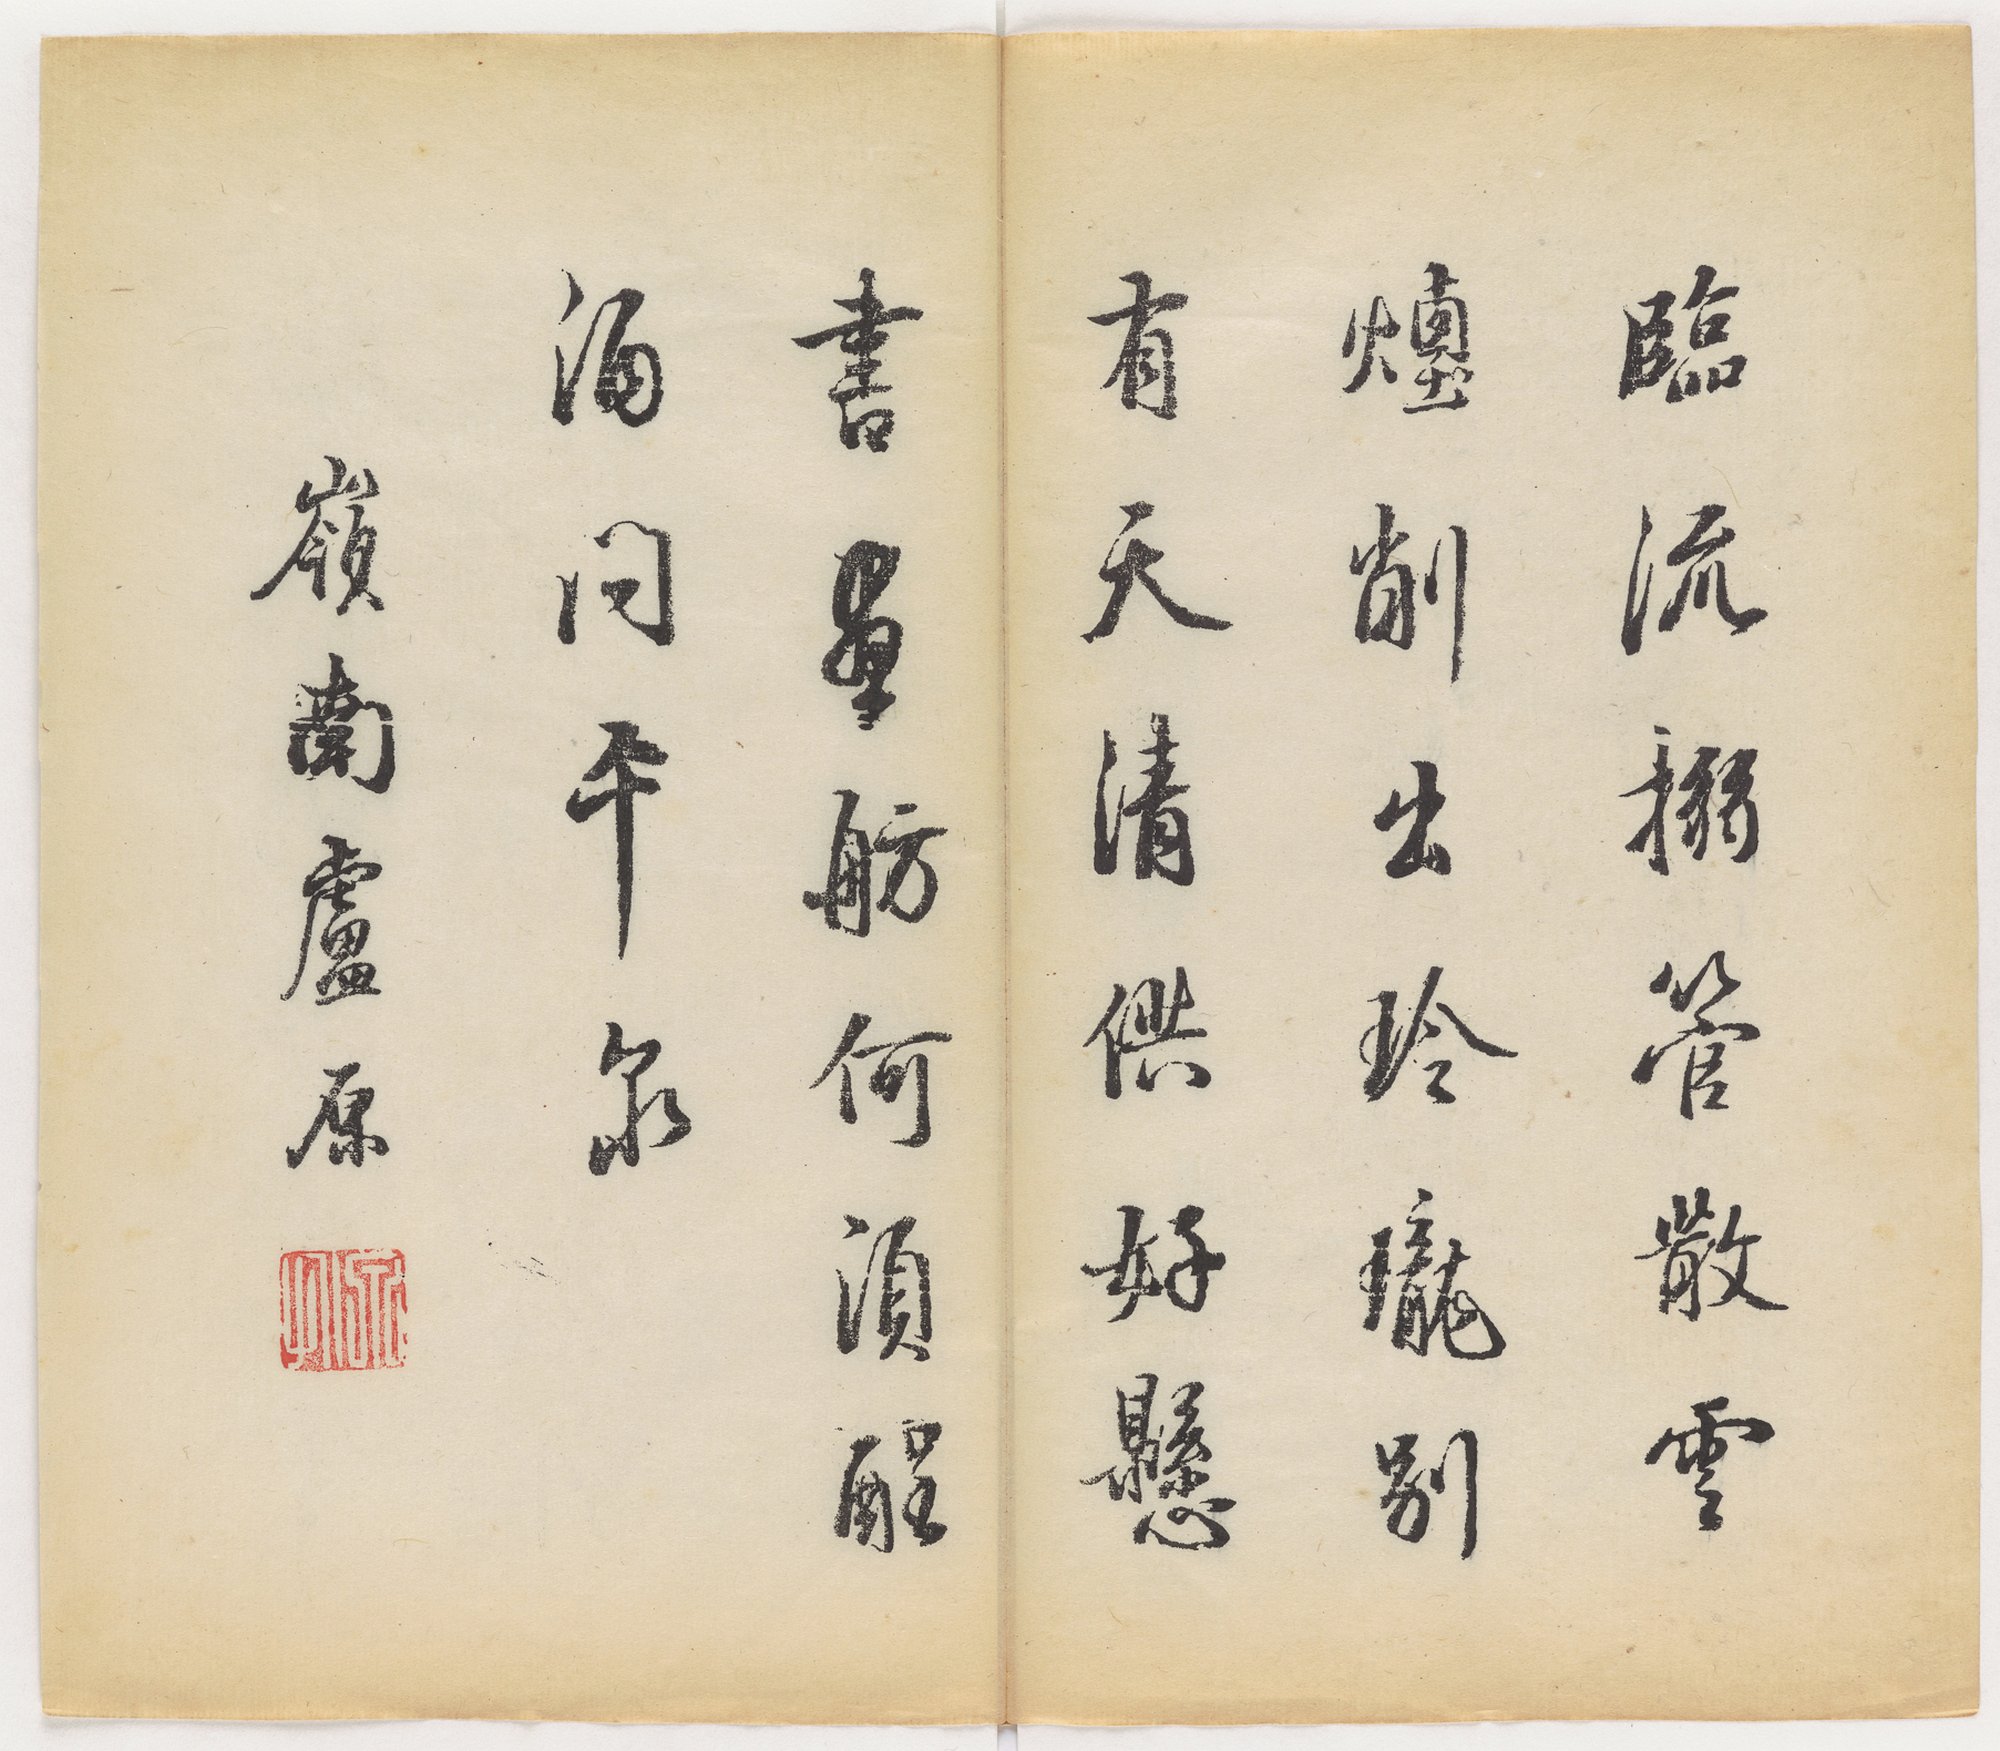 臨流搦管散雲
煙削出玲瓏別
有天清供好懸
書畫舫何須醒
酒問平泉
嶺南盧原